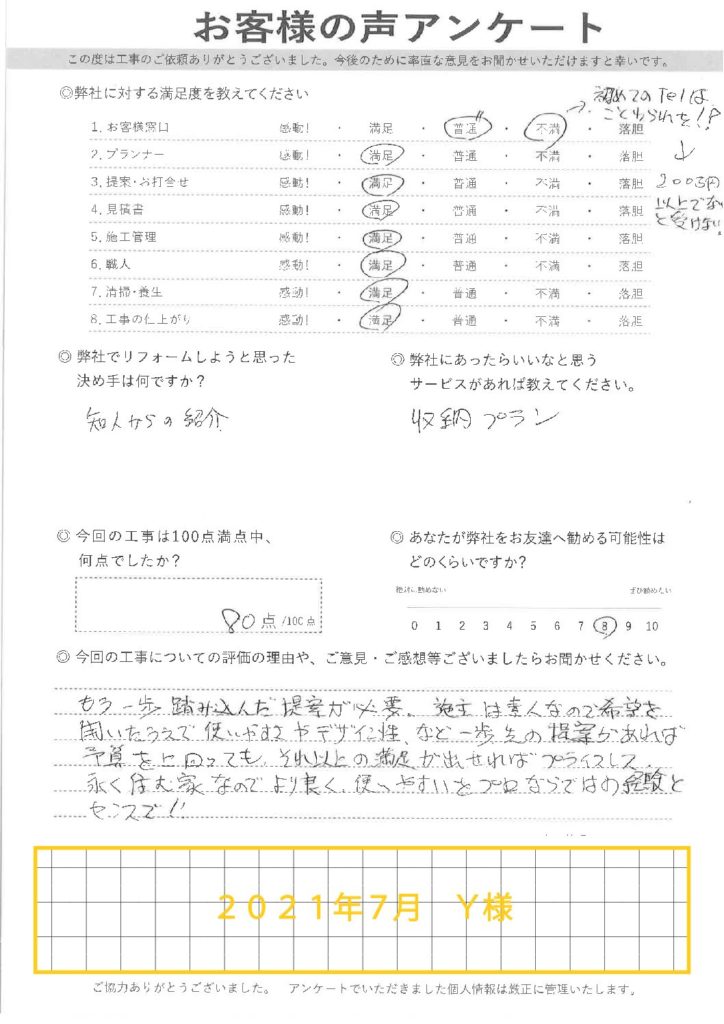 お客様の声アンケート
この度は工事のご依頼ありがとうございました。今後のために率直な意見をお聞かせいただけますと幸いです。
◎弊社に対する満足度を教えてください
初めてのTelは
ことわられた!!?
↓
200万円
以上でない
と受けない。
1. お客様窓口 感動! ・ 満足 ・ 普通 ・ 不満 ・ 落胆
2. プランナー 感動! ・ 満足 ・ 普通 ・ 不満 ・ 落胆
3. 提案・お打合せ 感動! ・ 満足 ・ 普通 ・ 不満 ・ 落胆
4. 見積書 感動! ・ 満足 ・ 普通 ・ 不満 ・ 落胆
5. 施工管理 感動! ・ 満足 ・ 普通 ・ 不満 ・ 落胆
6. 職人 感動! ・ 満足 ・ 普通 ・ 不満 ・ 落胆
7. 清掃・養生 感動! ・ 満足 ・ 普通 ・ 不満 ・ 落胆
8. 工事の仕上がり 感動! ・ 満足 ・ 普通 ・ 不満 ・ 落胆
◎ 弊社でリフォームしようと思った
決め手は何ですか?
知人からの紹介
◎ 弊社にあったらいいなと思う
サービスがあれば教えてください。
収納プラン
◎ 今回の工事は100点満点中、
何点でしたか?
80点 /100点
◎ あなたが弊社をお友達へ勧める可能性は
どのくらいですか?
絶対に勧めない ぜひ勧めたい
0 1 2 3 4 5 6 7 8 9 10
◎ 今回の工事についての評価の理由や、ご意見・ご感想等ございましたらお聞かせください。
もう一歩踏み込んだ提案が必要。施主は素人なので希望を
聞いたうえで使いやすさやデザイン性、など一歩先の提案があれば
予算を上回っても、それ以上の満足が出せればプライスレス。
永く住む家なのでより良く、使いやすいとプロならではの経験と
センスで!!
2021年7月 Y様
ご協力ありがとうございました。 アンケートでいただきました個人情報は厳正に管理いたします。